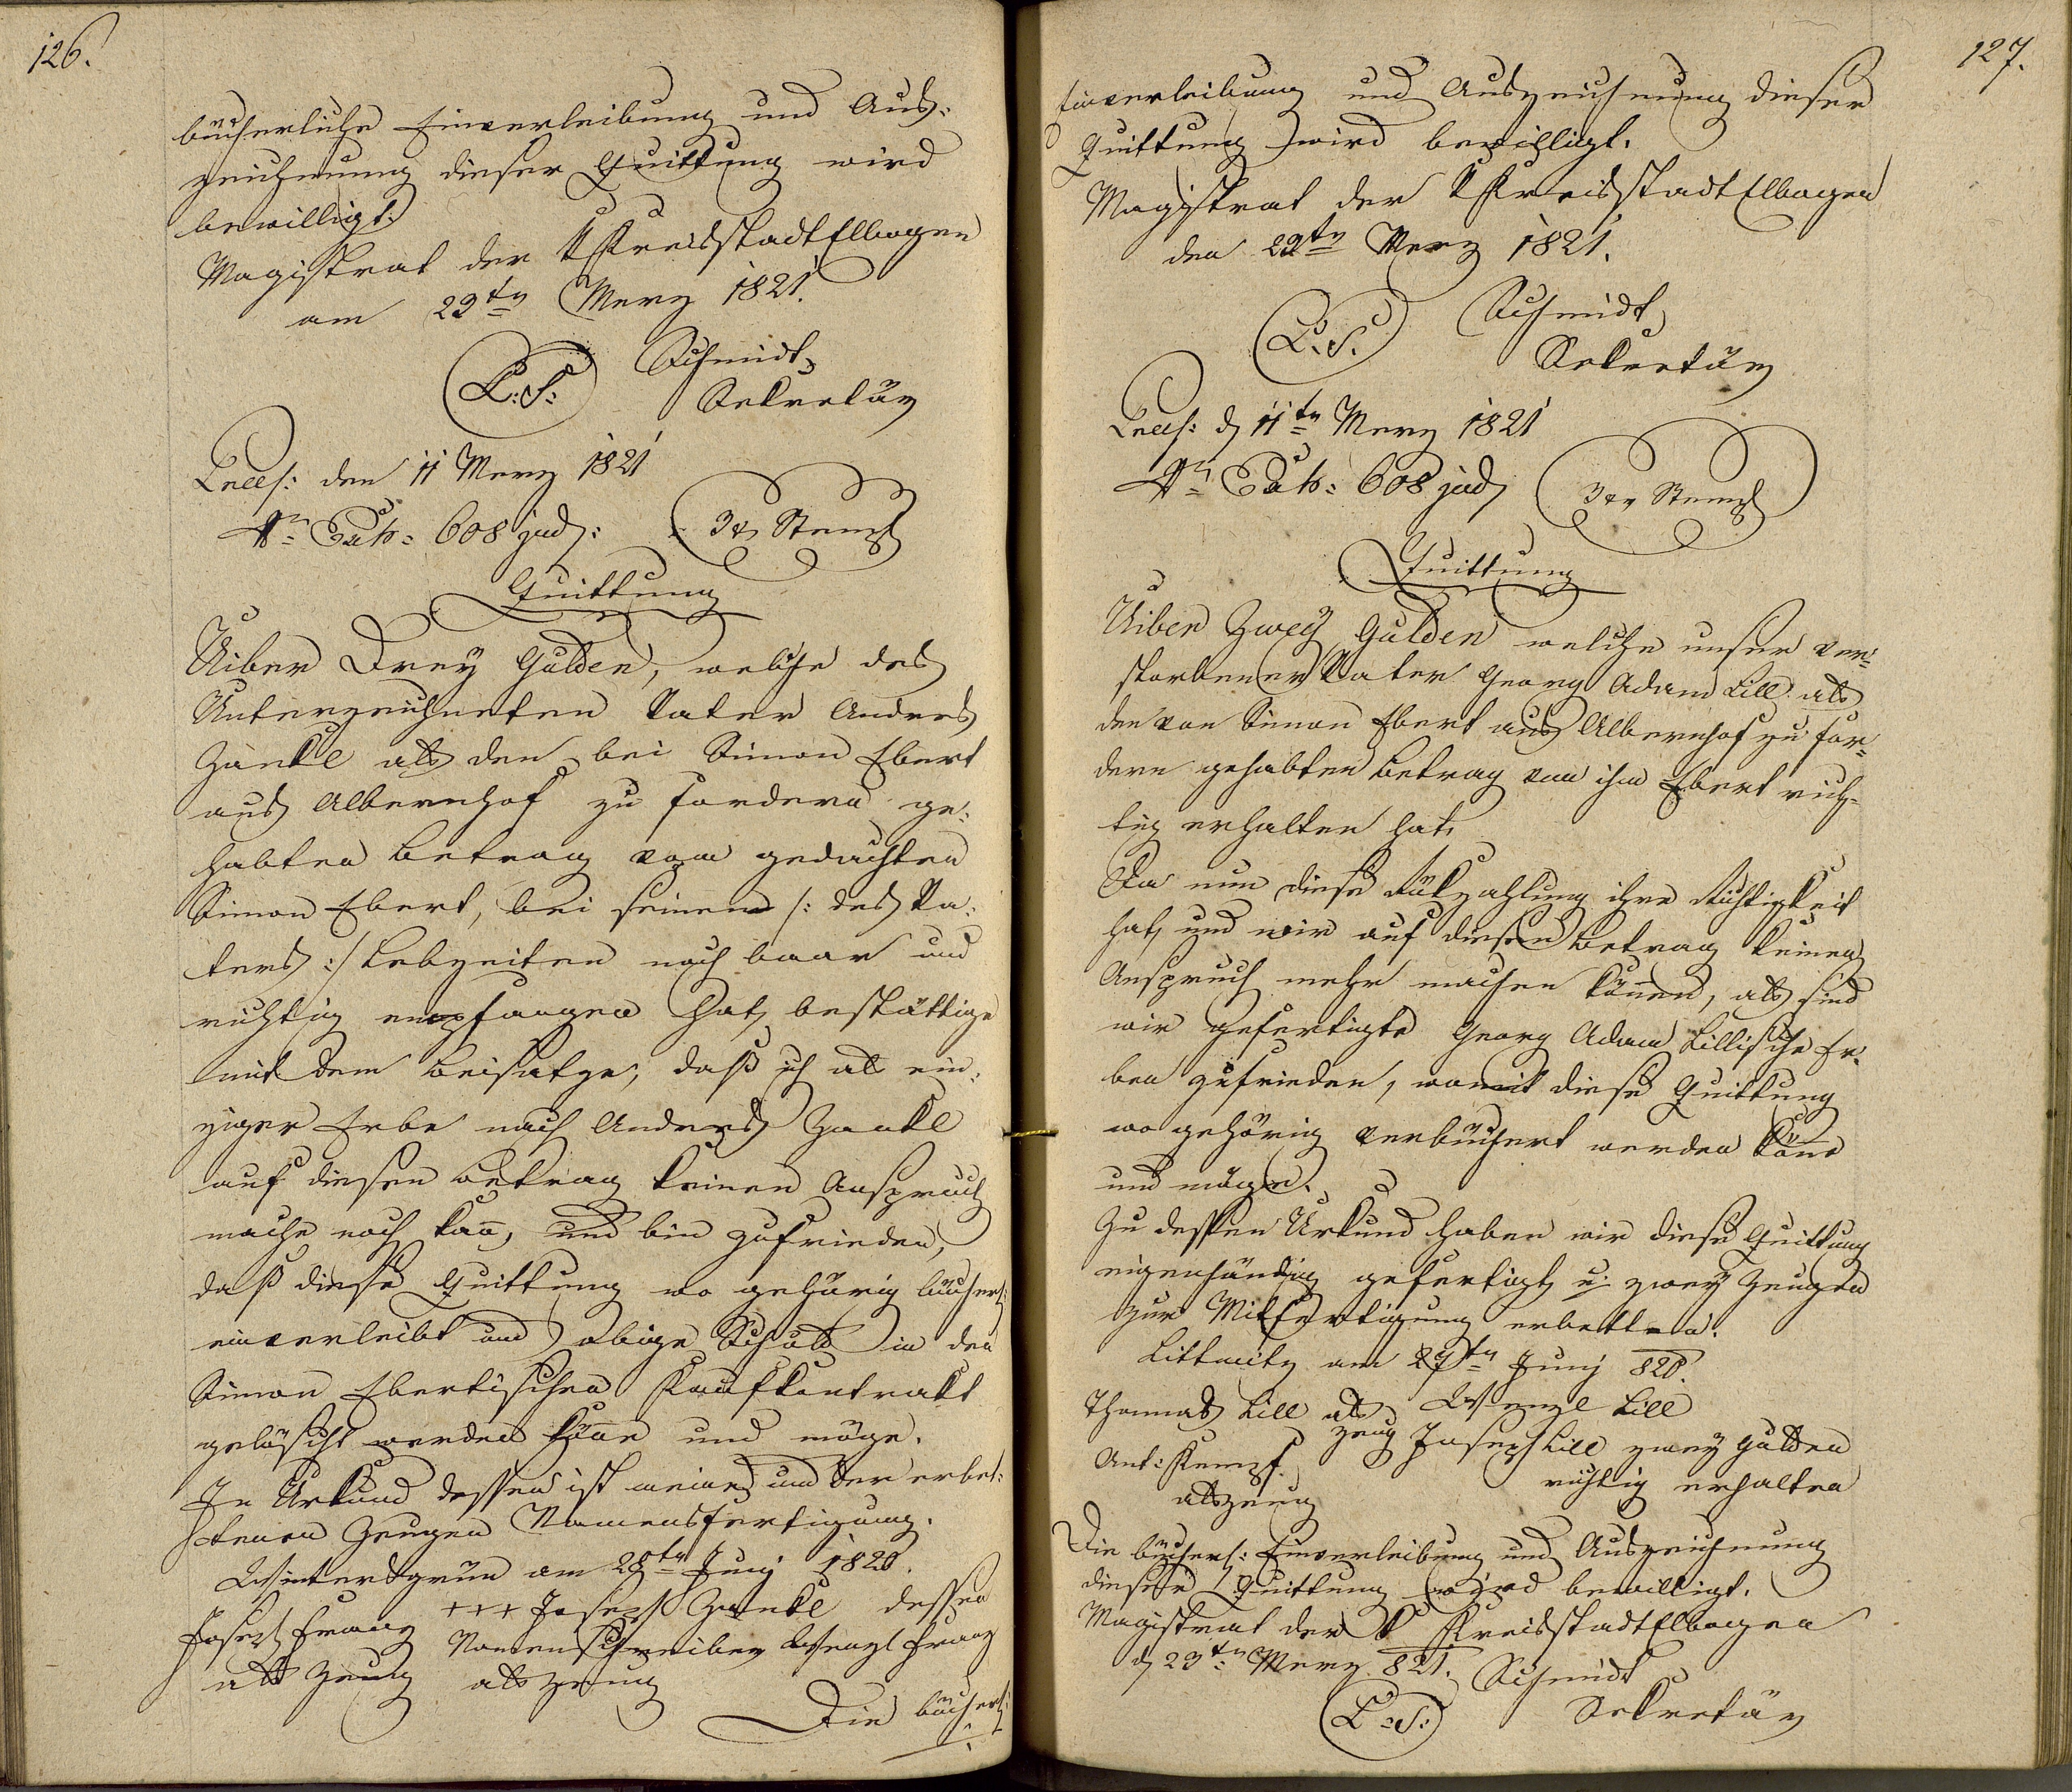 126.
bücherliche Einverleibung und Aus-
zeichnung dieser Quittung wird
bewilligt.
Magistrat der K Kreisstadt Elbogen
am 23tn Merz 1821.
L: S: Schmidt
Sekretär
Praes: den 11 Merz 1821
Nr Exh: 608 jud: 3 xr Stempl
Quittung
Uiber Drey Gulden, welche des
Unterzeichneten Vater Andres
Zankl als den bei Simon Ebert
aus Albernhof zu fordern ge-
habten Betrag vom gedachten
Simon Ebert, bei seinen /: des Va-
ters :/ Lebzeiten noch baar und
richtig empfangen hat, bestättige
mit dem Beisatze, daß ich als ein-
ziger Erbe nach Andres Zankl
auf diesen Betrag keinen Anspruch
mache noch kan̅, und bin zufrieden,
daß diese Quittung wo gehörig bücherl:
einverleibt und obige Schuld in den
Simon Ebertischen Kaufkontrakt
gelöscht werden kön̅e und möge.
In Urkund dessen ist meine und der erbet-
tenen Zeugen Namensfertigung.
Wintersgrün am 28tn Juny 1820.
Joseph Franz +++ Joseph Zankl dessen
als Zeug Namenschreiber Wenzl Franz
als Zeug
Die bücherl:
127.
Einverleibung und Auszeichnung dieser
Quittung wird bewilligt.
Magistrat der K Kreisstadt Elbogen
den 23tn Merz 1821.
L. S. Schmidt
Sekretär
Praes: d 11tn Merz 1821
Nr Exh: 608 jud 3 xr Stempl
Quittung
Uiber Zwey Gulden welche unser ver-
storbener Vater Georg Adam Lill als
den von Simon Ebert aus Albernhof zu for-
dern gehabten Betrag von ihm Ebert rich-
tig erhalten hat.
Da nun diese Rükzahlung ihre Richtigkeit
hat, und wir auf diesen Betrag keinen
Anspruch mehr machen kön̅en, als sind
wir gefertigte Georg Adam Lillische Er-
ben zufrieden, womit diese Quittung
wo gehörig verbüchert werden kön̅e
und möge.
Zu dessen Urkund haben wir diese Quittung
eigenhändig gefertigt, u. zwey Zeugen
zur Mitfertigung erbetten.
Littmitz am 27tn Juny 820.
Thomas Lill als Wenzl Lill
Zeug Joseph Lill zwey Gulden
Ant: Kempf richtig erhalten
als Zeug
Die bücherl: Einverleibung und Auszeichnung
dieser Quittung wird bewilligt.
Magistrat der K Kreisstadt Elbogen
d 23tn Merz 821. Schmidt
L: S: Sekretär